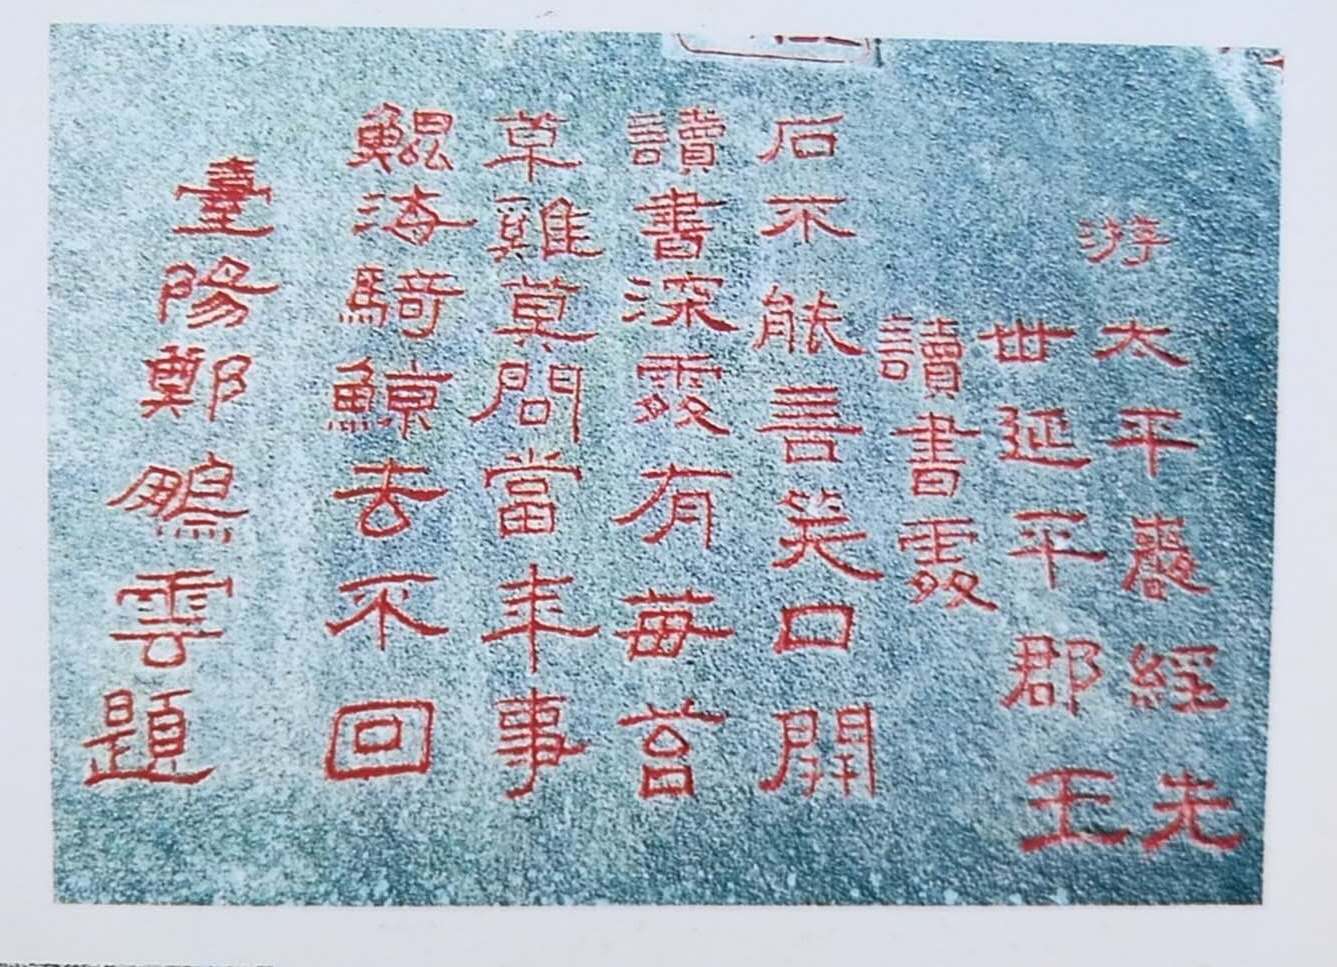 游太平巖經先
世延平郡王
讀書處
石不能言笑口開
讀書深處有苺苔
草雞莫問當年事
鯤海騎鯨去不回
臺陽鄭鵬雲題